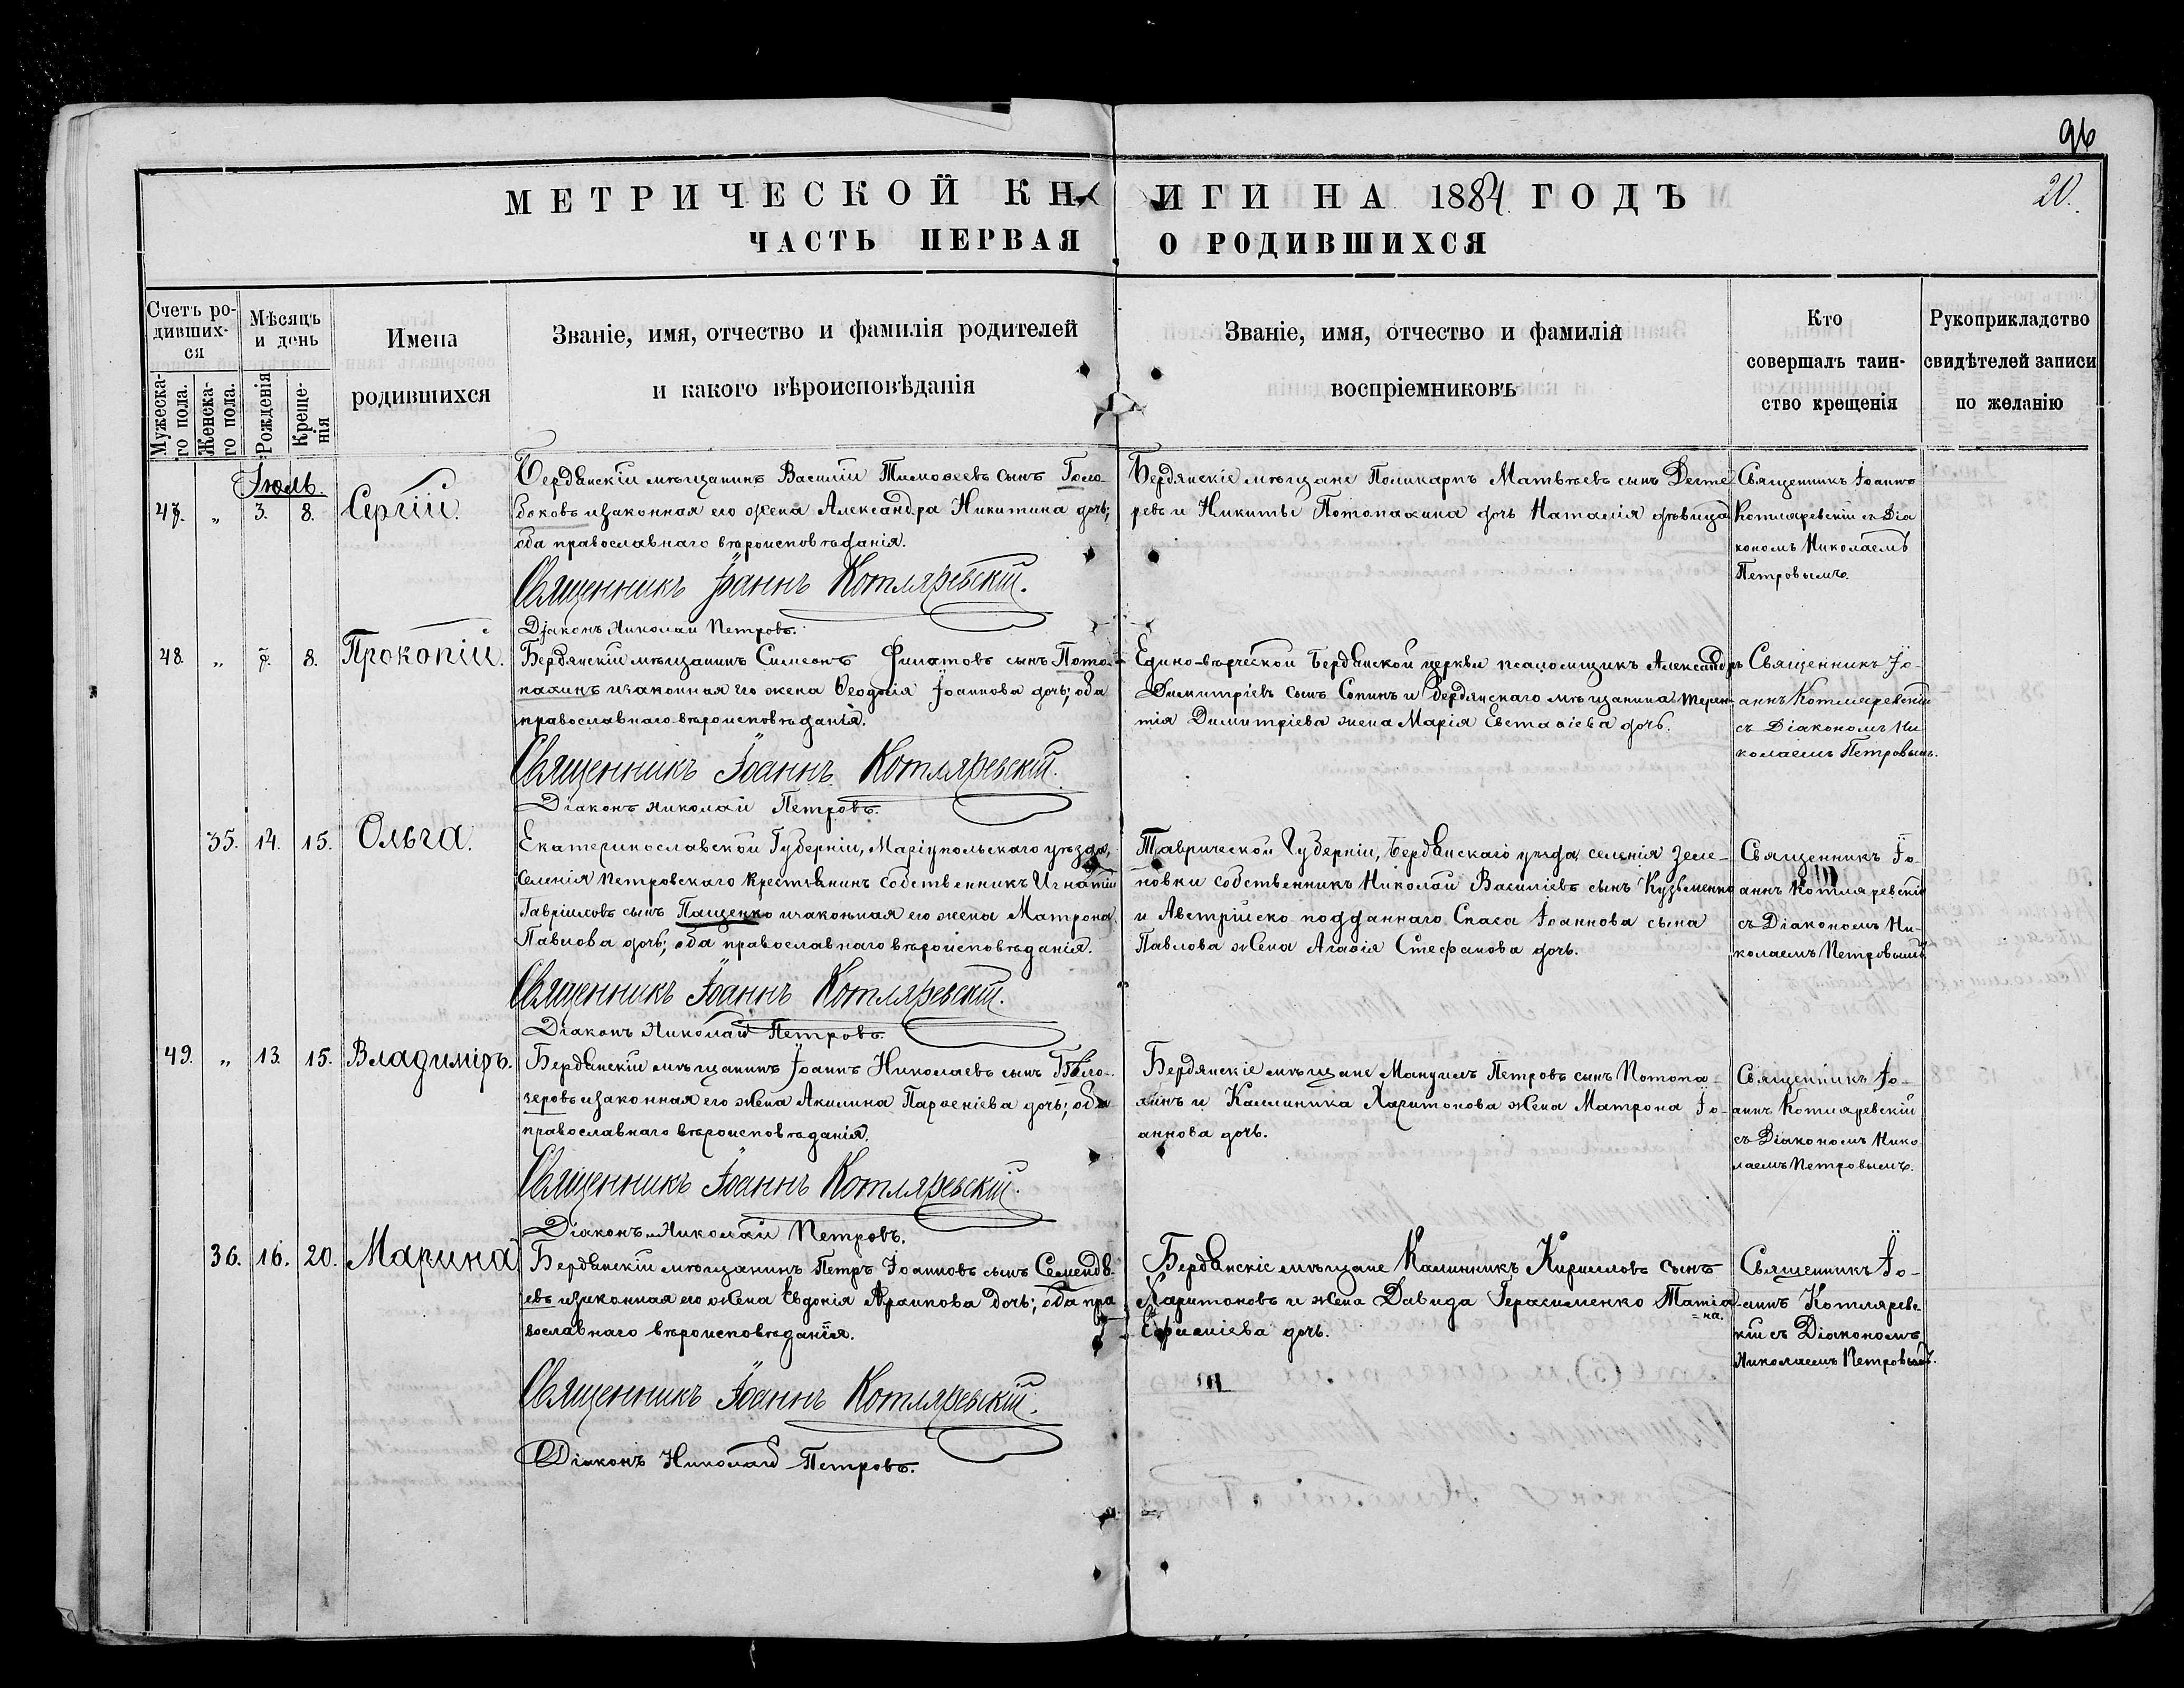 96
МЕТРИЧЕСКОЙ КНИГИ НА 1884 ГОДЪ
20.
ЧАСТЬ ПЕРВАЯ О РОДИВШИХСЯ
Счетъ ро-
дивших-
ся
Мужеска-
го пола.
Женска-
го пола.
Мѣсяцъ
и день
Рожденія
Креще-
нія
Имена
родившихся
Званіе, имя, отчество и фамилія родителей
и какого вѣроисповѣданія
Званіе, имя, отчество и фамилія
воспріемниковъ
Кто
совершалъ таин-
ство крещенія
Рукоприкладство
свидѣтелей записи
по желанію
Іюль.
47. „ 3. 8. Сергій.
Бердянскій мѣщанинъ Василій Тимоѳеевъ сынъ Голо-
боковъ и законная его жена Александра Никитина дочь;
оба православнаго вѣроисповѣданія.
Священникъ Іоаннъ Котляревскій.
Діаконъ Николай Петровъ.
Бердянскіе мѣщане Поликарпъ Матвѣевъ сынъ Дегте-
ревъ и Никиты Потопахина дочь Наталія дѣвица
Священникъ Іоаннъ
Котляревскій съ Діа
кономъ Николаемъ
Петровымъ.
48. „ 7. 8. Прокопій.
Бердянскій мѣщанинъ Симеонъ Филатовъ сынъ Пото-
пахинъ и законная его жена Ѳеодосія Іоаннова дочь; оба
православнаго вѣроисповѣданія.
Священникъ Іоаннъ Котляревскій.
Діаконъ Николай Петровъ.
Едино-вѣрческой Бердянской церкви псаломщикъ Александръ
Димитріевъ сынъ Сопинъ и Бердянскаго мѣщанина Терен-
тія Димитріева жена Марія Евстаѳіева дочь.
Священникъ Іо-
аннъ Котляревскій
съ Діакономъ Ни
колаемъ Петровымъ.
35. 14. 15. Ольга.
Екатеринославской Губерніи, Маріупольскаго уѣзда,
селенія Петровскаго крестьянинъ собственникъ Игнатій
Гавріиловъ сынъ Пащенко и законная его жена Матрона
Павлова дочь; оба православнаго вѣроисповѣданія.
Священникъ Іоаннъ Котляревскій.
Діаконъ Николай Петровъ.
Таврической Губерніи, Бердянскаго уѣзда селенія Зеле-
новки собственникъ Николай Василіевъ сынъ Кузьменко
и Австрійско подданнаго Спаса Іоаннова сына
Павлова жена Агаѳія Стефанова дочь.
Священникъ Іо-
аннъ Котляревскій
съ Діакономъ Ни-
колаемъ Петровымъ.
49. „ 13. 15. Владиміръ.
Бердянскій мѣщанинъ Іоаннъ Николаевъ сынъ Бѣло-
зеровъ и законная его жена Акилина Парѳеніева дочь; оба
православнаго вѣроисповѣданія.
Священникъ Іоаннъ Котляревскій.
Діаконъ Николай Петровъ.
Бердянскіе мѣщане Мануилъ Петровъ сынъ Потопа-
хинъ и Каллиника Харитонова жена Матрона Іо-
аннова дочь.
Священникъ Іо-
аннъ Котляревскій
съ Діакономъ Нико
лаемъ Петровымъ.
36. 16. 20. Марина
Бердянскій мѣщанинъ Петръ Іоанновъ сынъ Семендя-
евъ и законная его жена Евдокія Архипова дочь; оба пра
вославнаго вѣроисповѣданія.
Священникъ Іоаннъ Котляревскій.
Діаконъ Николай Петровъ.
Бердянскіе мѣщане Калинникъ Кирилловъ сынъ
Харитоновъ и жена Давида Герасименко Татіа-
=на.
дочь.
Священникъ Іо-
аннъ Котляревс
кій съ Діакономъ
Николаемъ Петровымъ.